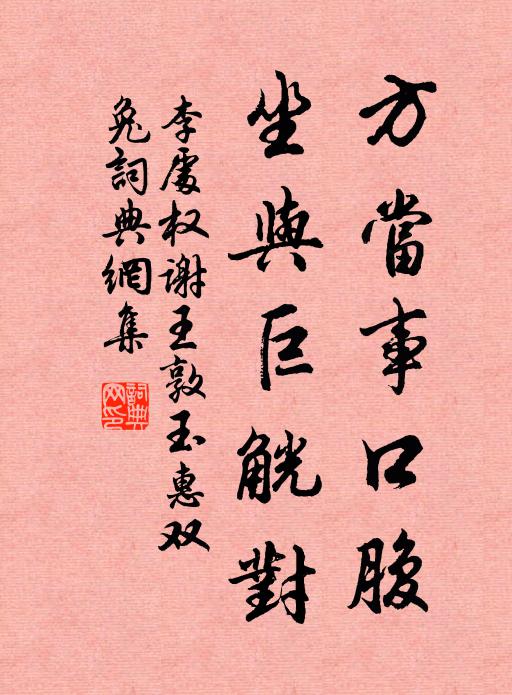 方當事口腹
坐與巨觥對
李處权谢王敦玉惠双
兔詞典網集
詞典网印